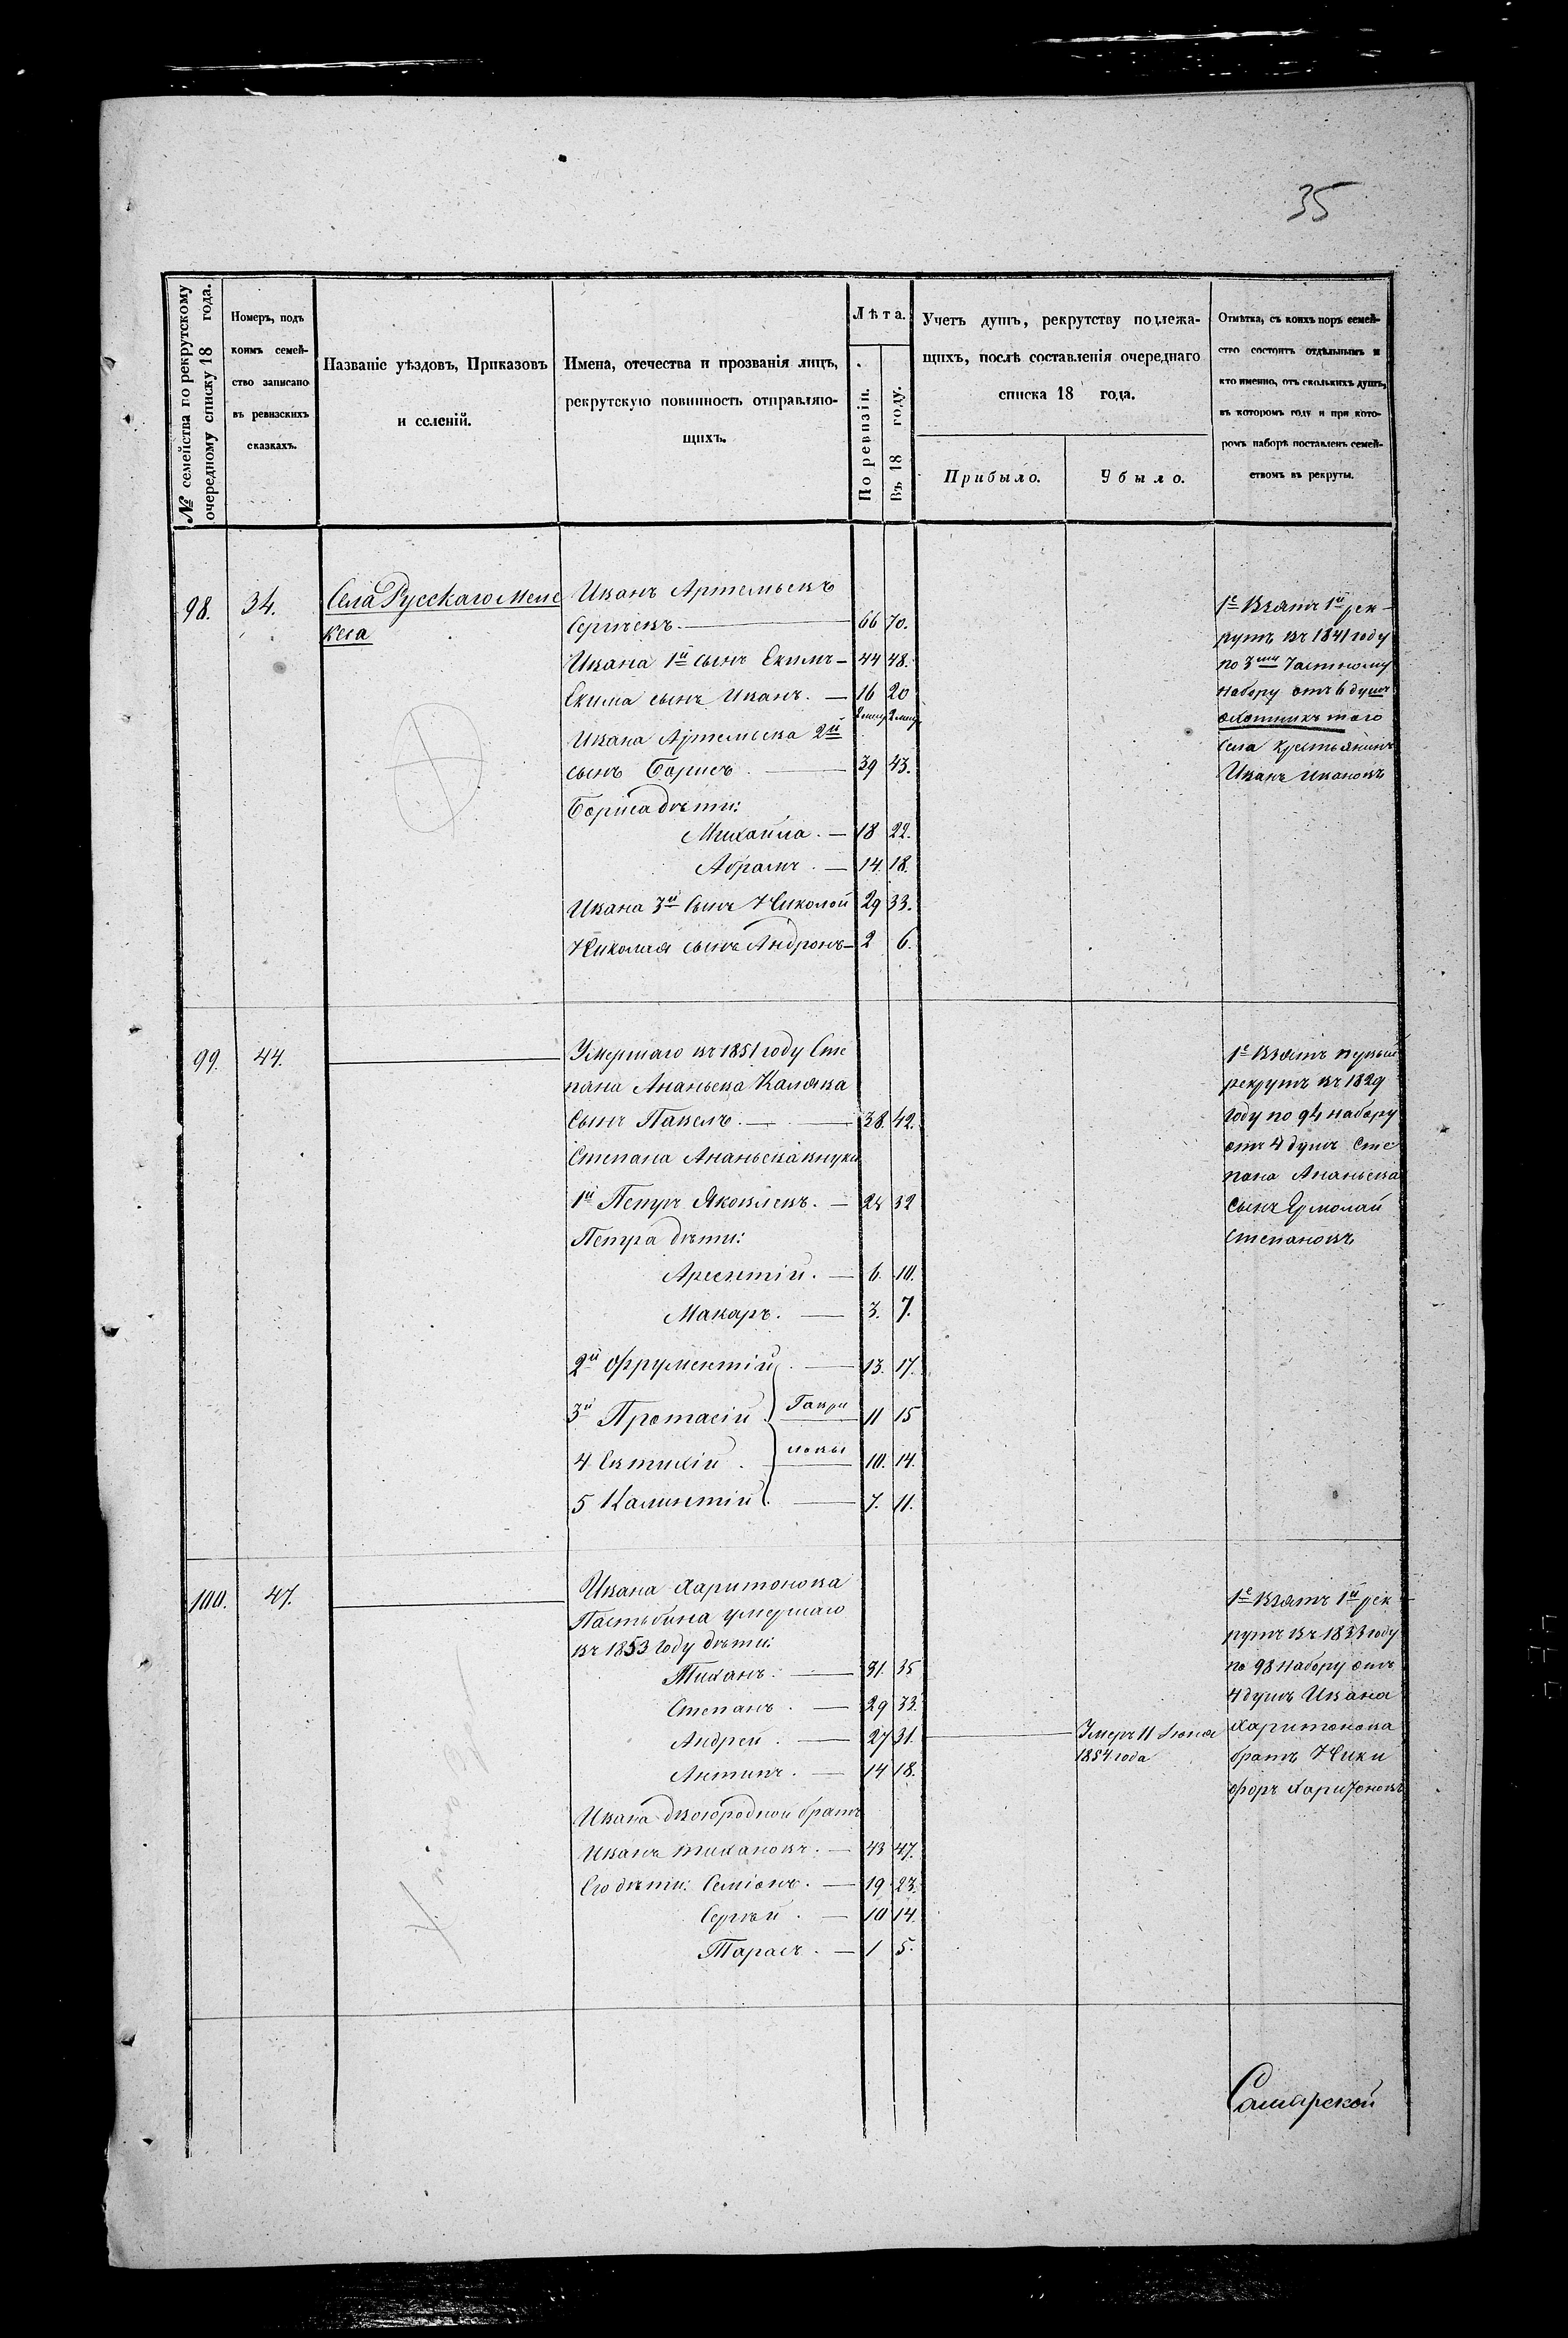 35
№ семейства по рекрутскому
очередному списку 18 года.
Номеръ, подъ
коимъ семей-
ство записано
въ ревизскихъ
сказкахъ.
Названіе уѣздовъ, Приказовъ
и селеній.
Имена, отечества и прозванія лицъ,
рекрутскую повинность отправляю-
щихъ.
Лѣта.
По ревизіи.
Въ 18 году.
Учетъ душъ, рекрутству подлежа-
щихъ, послѣ составленія очереднаго
списка 18 года.
Прибыло.
Убыло.
Отмѣтка, съ коихъ поръ семей-
ство состоитъ отдѣльнымъ и
кто именно, отъ сколькихъ душъ,
въ которомъ году и при кото-
ромъ наборѣ поставленъ семей-
ствомъ въ рекруты.
98. 34. Села Русскаго Меле
кеса
Иванъ Артемьевъ
Сергѣевъ. 66 70.
Ивана 1й сынъ Екимъ 44 48.
Екима сынъ Иванъ. 16 20
Ивана Артемьева 2й
сынъ Борисъ 39 43.
Бориса дѣти:
Михайла. 18 22.
Абрамъ. 14. 18.
Ивана 3й сынъ Николай 29 33.
Николая сынъ Андронъ 2 6.
1е Взятъ 1й рек-
рутъ въ 1841 году
по 3ему Частному
набору отъ 6 душъ
охотникъ того
села крестьянинъ
Иванъ Ивановъ
99. 44.
Умершаго въ 1851 году Сте
пана Ананьева
сынъ Павелъ. 38. 42.
Степана Ананьева внуки
1й Петръ Яковлевъ. 28 32
Петра дѣти:
Арсентій. 6. 10.
Макаръ. 3. 7.
2й Фрументій 13. 17.
3й Протасій Гаври 11 15
4 Евтихій. ловы 10. 14.
5 Калинтій. 7. 11.
1е Взятъ первый
рекрутъ въ 1829
году по 94 набору
отъ 4 душъ Сте
пана Ананьева
сынъ Ермолай
Степановъ
100. 47.
Ивана Харитонова
умершаго
въ 1853 году дѣти:
Тиханъ. 31. 35
Степанъ. 29 33.
Андрей. 27 31. Умеръ 11 Июня
1854 года
Антипъ. 14 18.
Ивана двоюродной братъ
Иванъ Тихановъ. 43 47.
Его дѣти: Семіонъ. 19 23.
Сергѣй. 10 14.
Тарасъ. 1 5.
1е Взятъ 1й рек
рутъ въ 1833 году
по 98 набору отъ
4 душъ Ивана
Харитонова
братъ Ники
форъ Харитоновъ
Самарской